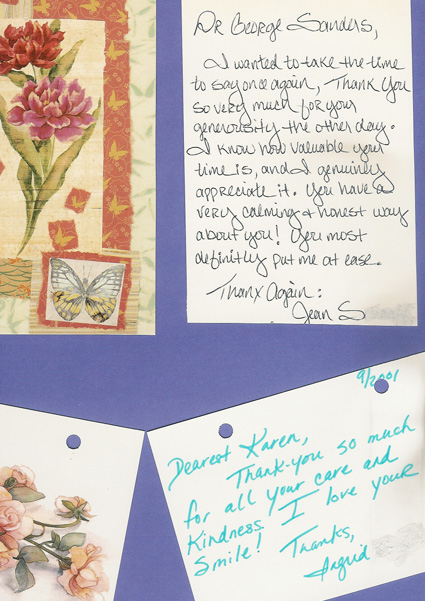 Dr George Sanders,
I wanted to take the time
to say once again, Thank You
so very much for your
generousity the other day.
I know how valuable your
time is, and I genuinly
appreciate it. You have a
very calming & honest way
about you! You most
definitly put me at ease.
Thanx Again:
Jean S
9/2001
Dearest Karen,
Thank-you so much
for all your care and
Kindness. I love your
Smile! Thanks,
Ingrid